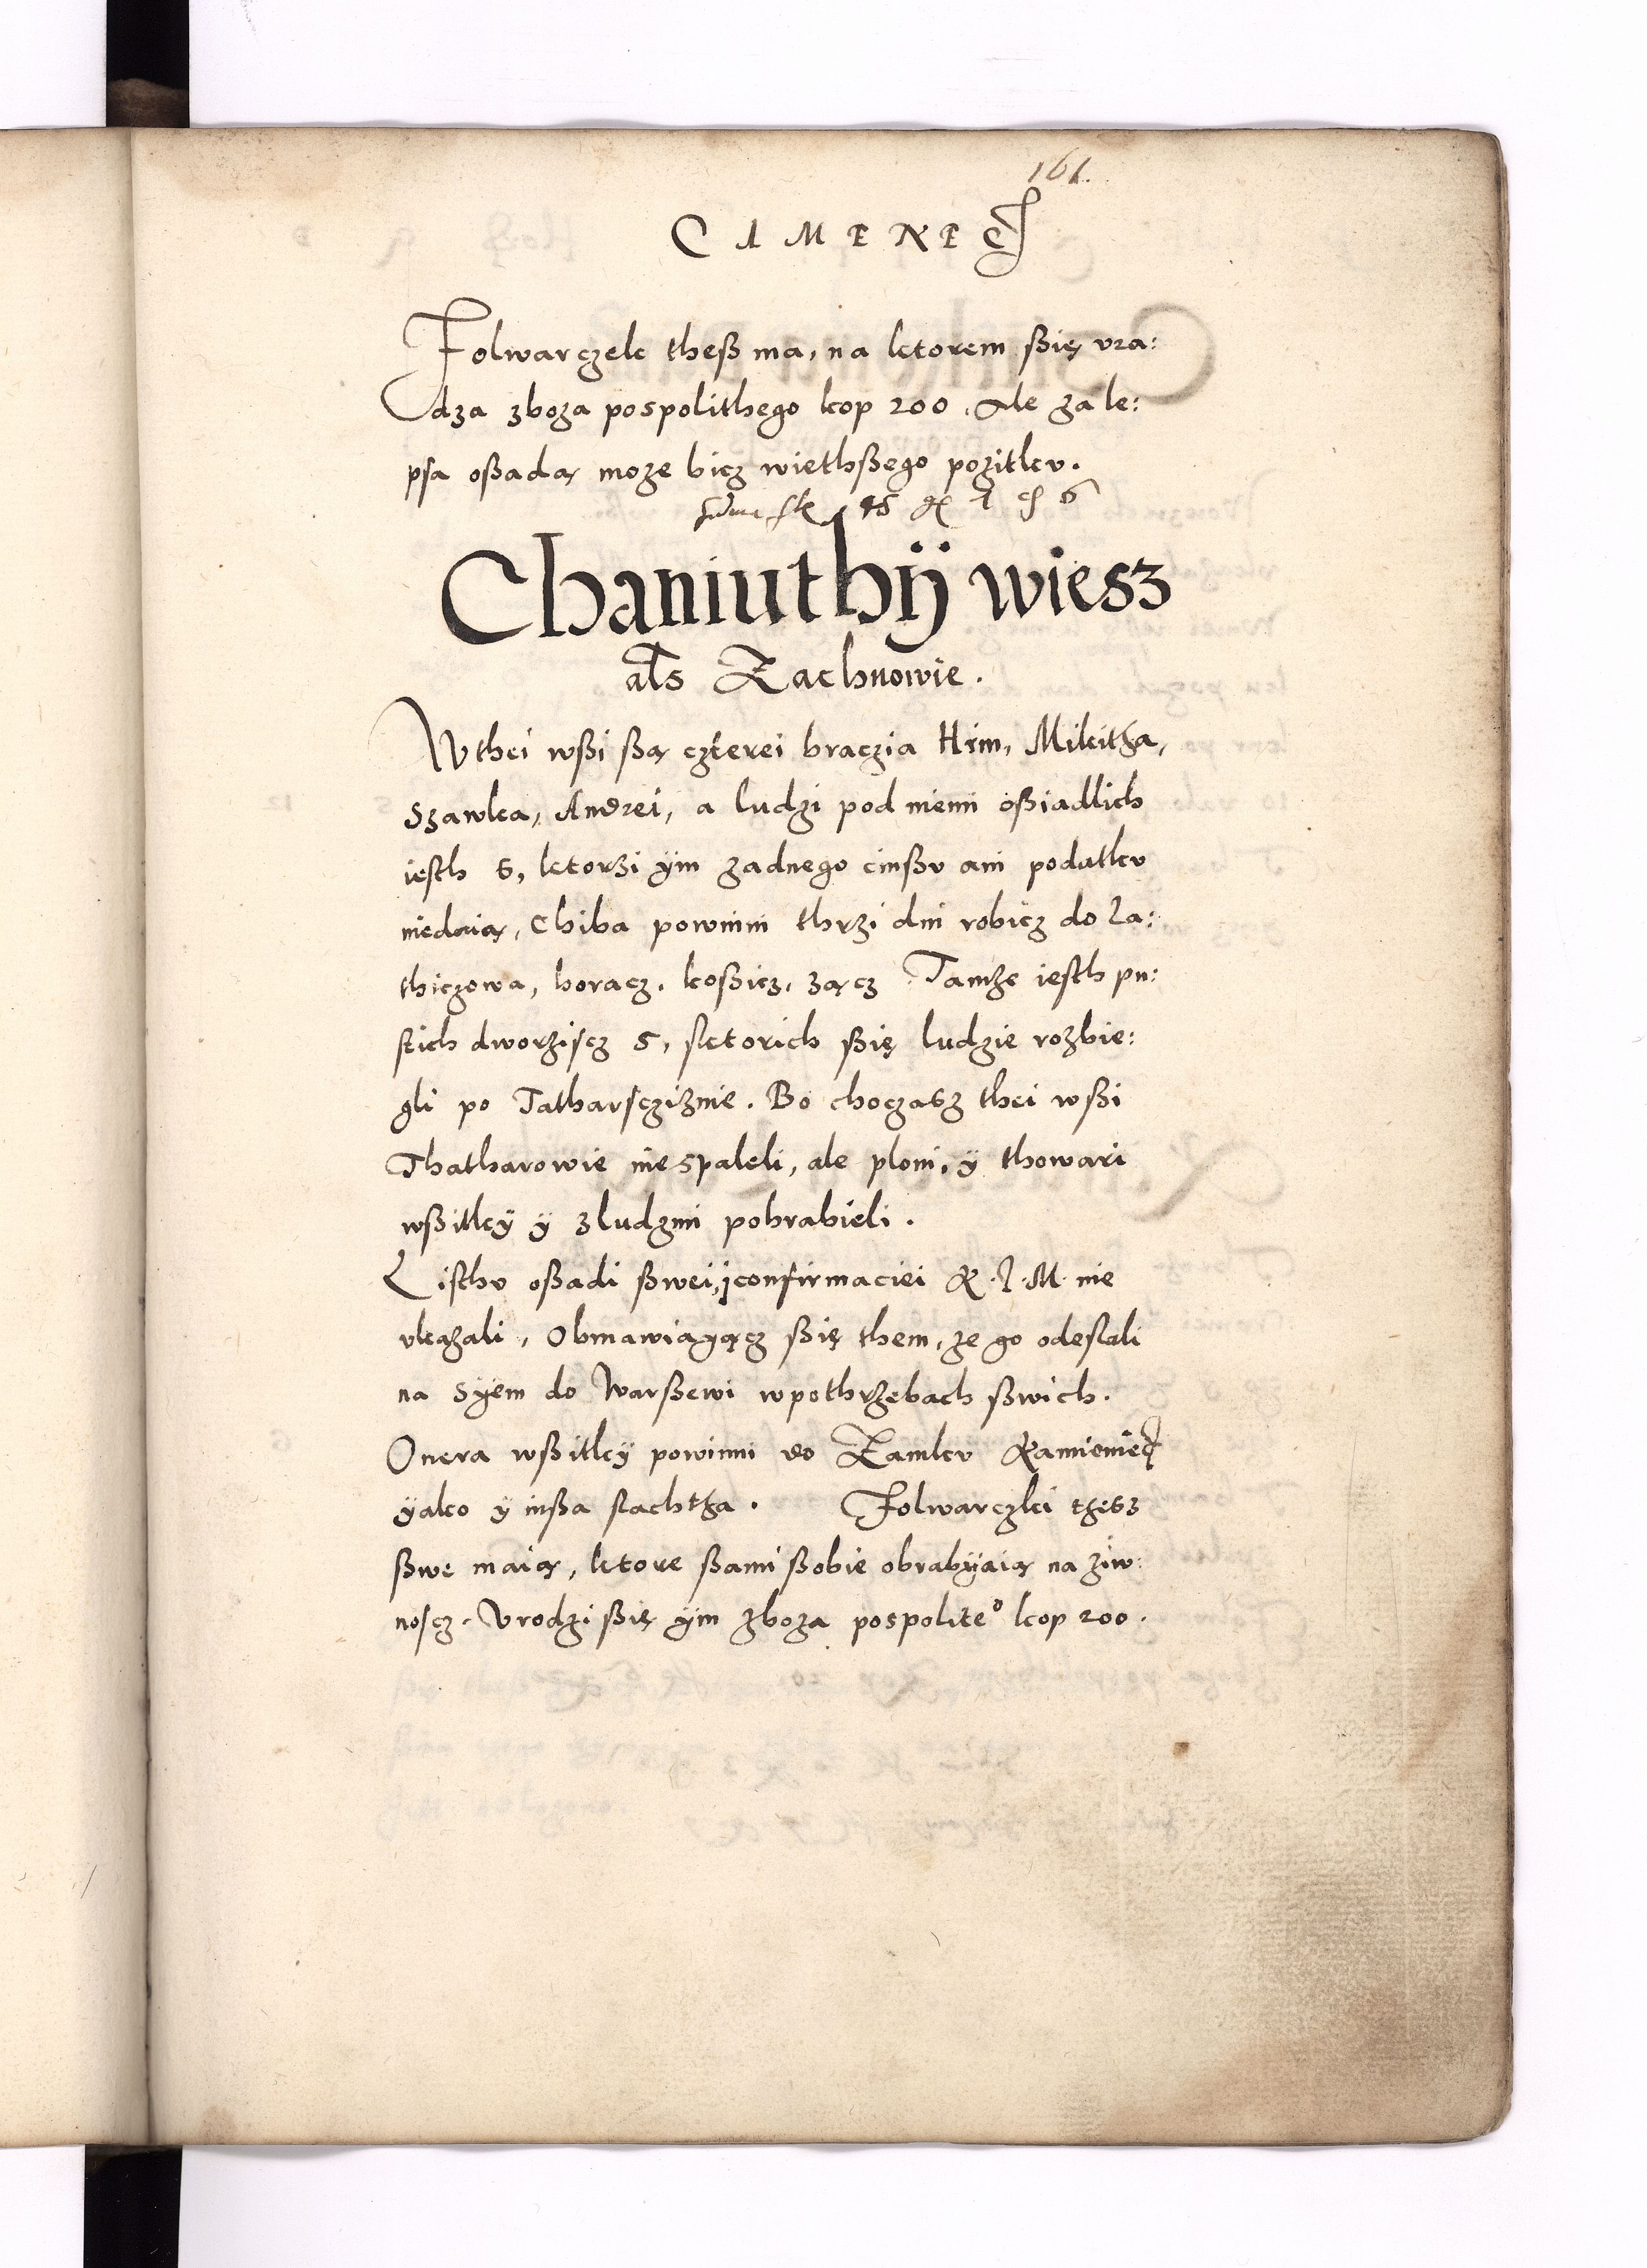 161.
CAMENEC
Folwarczek theß ma, na ktorem ßię vra:
dza zboza pospolithego kop 200. Ale za le:
psa oßadą moze bicz wiethßego pozitkv.
15 1 6
Chaniuthÿ wiesz
als Zachnowie.
W thei wßi ßą czterei braczia Him, Mikitha,
Szawka, Andrei, a ludzi pod niemi oßiadlich
iesth 6, ktorzi ÿm zadnego cinßv ani podatkv
niedaią, Chiba powinni thrzi dni robicz do La:
thiczowa, horacz, koßicz, zącz Tamze iesth pu:
stich dworziscz 5, sktorich ßię ludzie rozbie:
gli po Tatharscziznie. Bo choczasz thei wßi
Thatharowie nie spaleli, ale ploni, ÿ thowari
wßitkÿ ÿ z ludzmi pobrabieli.
Listhv oßadi ßwei, j confirmaciei K. J. M. nie
vkazali, Obmawiaÿącz ßię them, ze go odeslali
na Syem do Warßewi w pothrzebach ßwich.
Onera wßitkÿ powinni do Zamkv Kamieniec
ÿako ÿ inßa slachtha. Folwarczki thesz
ßwe maią, ktore ßami ßobie obrabÿaią na ziw:
noscz. Vrodzi ßię ÿm zboza pospolite° kop 200.